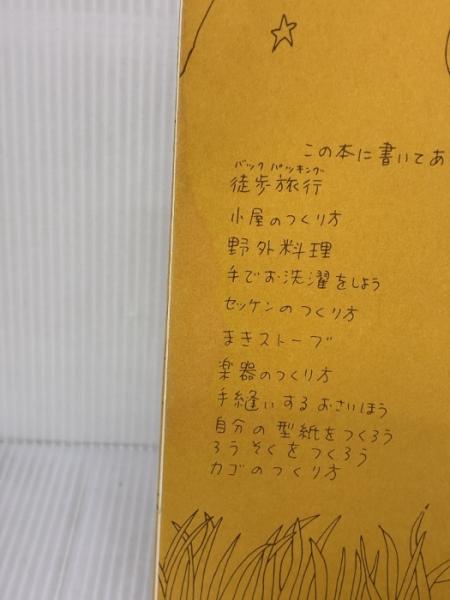 この本に書いてあ
バック パッキング
徒歩旅行
小屋のつくり方
野外料理
手でお洗濯をしよう
セッケンのつくり方
まきストーブ
楽器のつくり方
手縫いするおさいほう
自分の型紙をつくろう
ろうそくをつくろう
カゴのつくり方